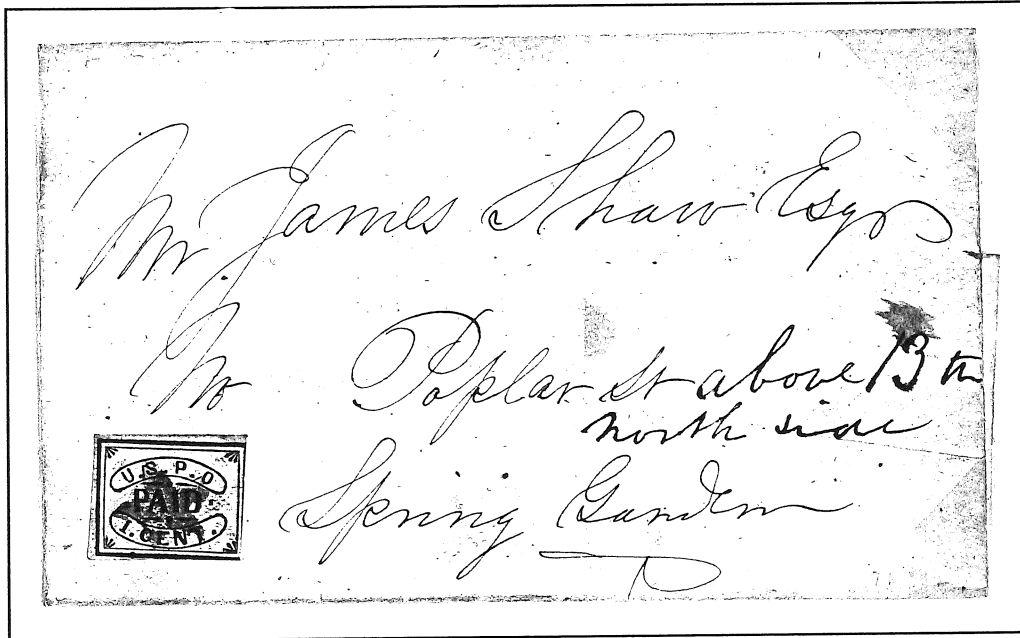 Mr James Shaw Esqr
No Poplar St above 13th
north side
Spring Garden
U.S.P.O
PAID.
1.CENT.